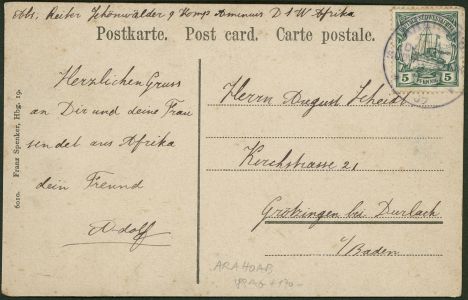 Abs. Reiter Schönwälder 9 Komp Aminuis D S W Afrika
Postkarte. Post card. Carte postale.
5 5
PFENNIG
Herzlichen Gruss
an Dir und deine Frau
sendet aus Afrika
dein Freund
Adolf
Herrn August Scheidt
Kirchstrasse 21
Grötzingen bei Durlach
i/Baden
6010. Franz Spenker, Hbg. 19.
ARAHOAB